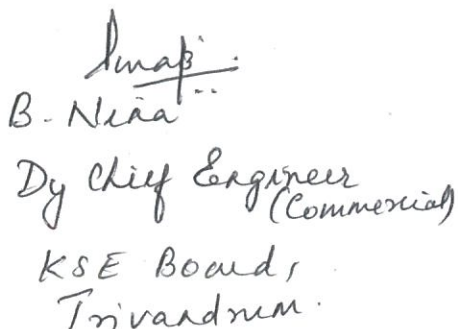 B. Nina
Dy Chief Engineer
(Commercial)
KSE Board,
Trivandrum.